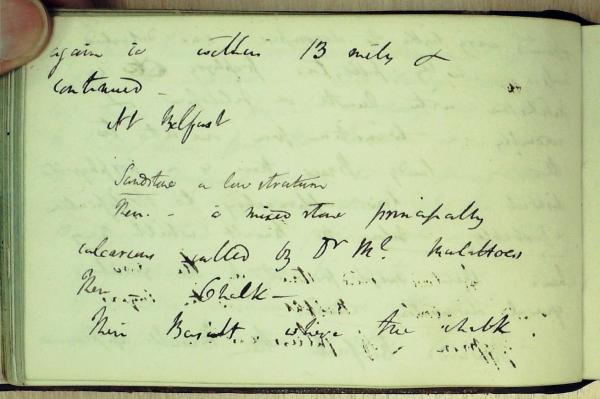 again to within 13 miles &
continued -
At Belfast
Sandstone a low stratum
Then - a mixed stone principally
calcareous called by Dr Mc.
Then Chalk -
Then Basalt where the chalk